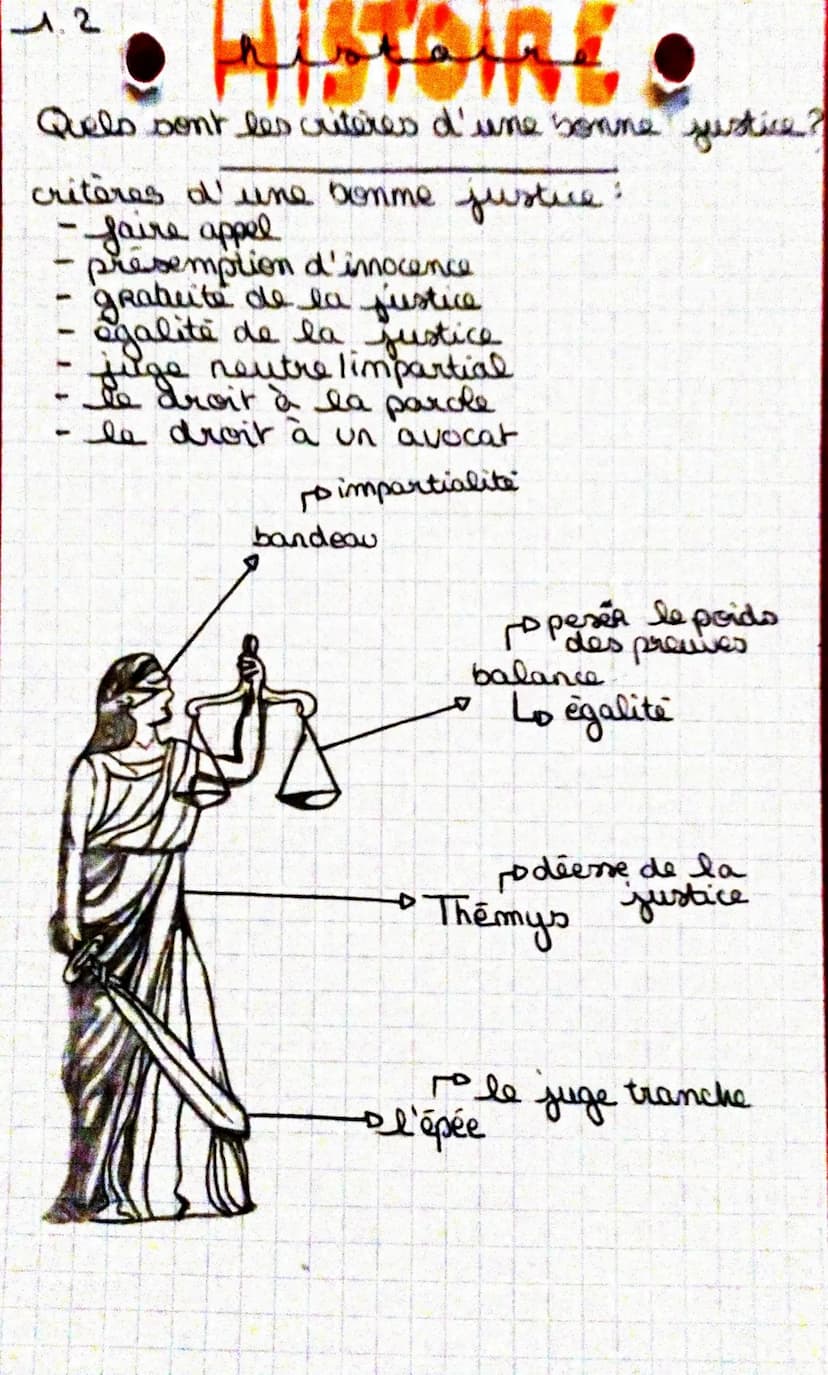 1.2
HISTOIRE
histoire
Quels sont les critères d'une bonne justice?
critères d'une bonne justice:
- faire appel
- présemption d'innocence
- gratuité de la justice
- égalité de la justice
- juge neutre/impartial
- le droit à la parole
- le droit à un avocat
impartialité
bandeau
peser le poids
des preuves
balance
égalité
déesse de la
justice
Thémys
le juge tranche
l'épée